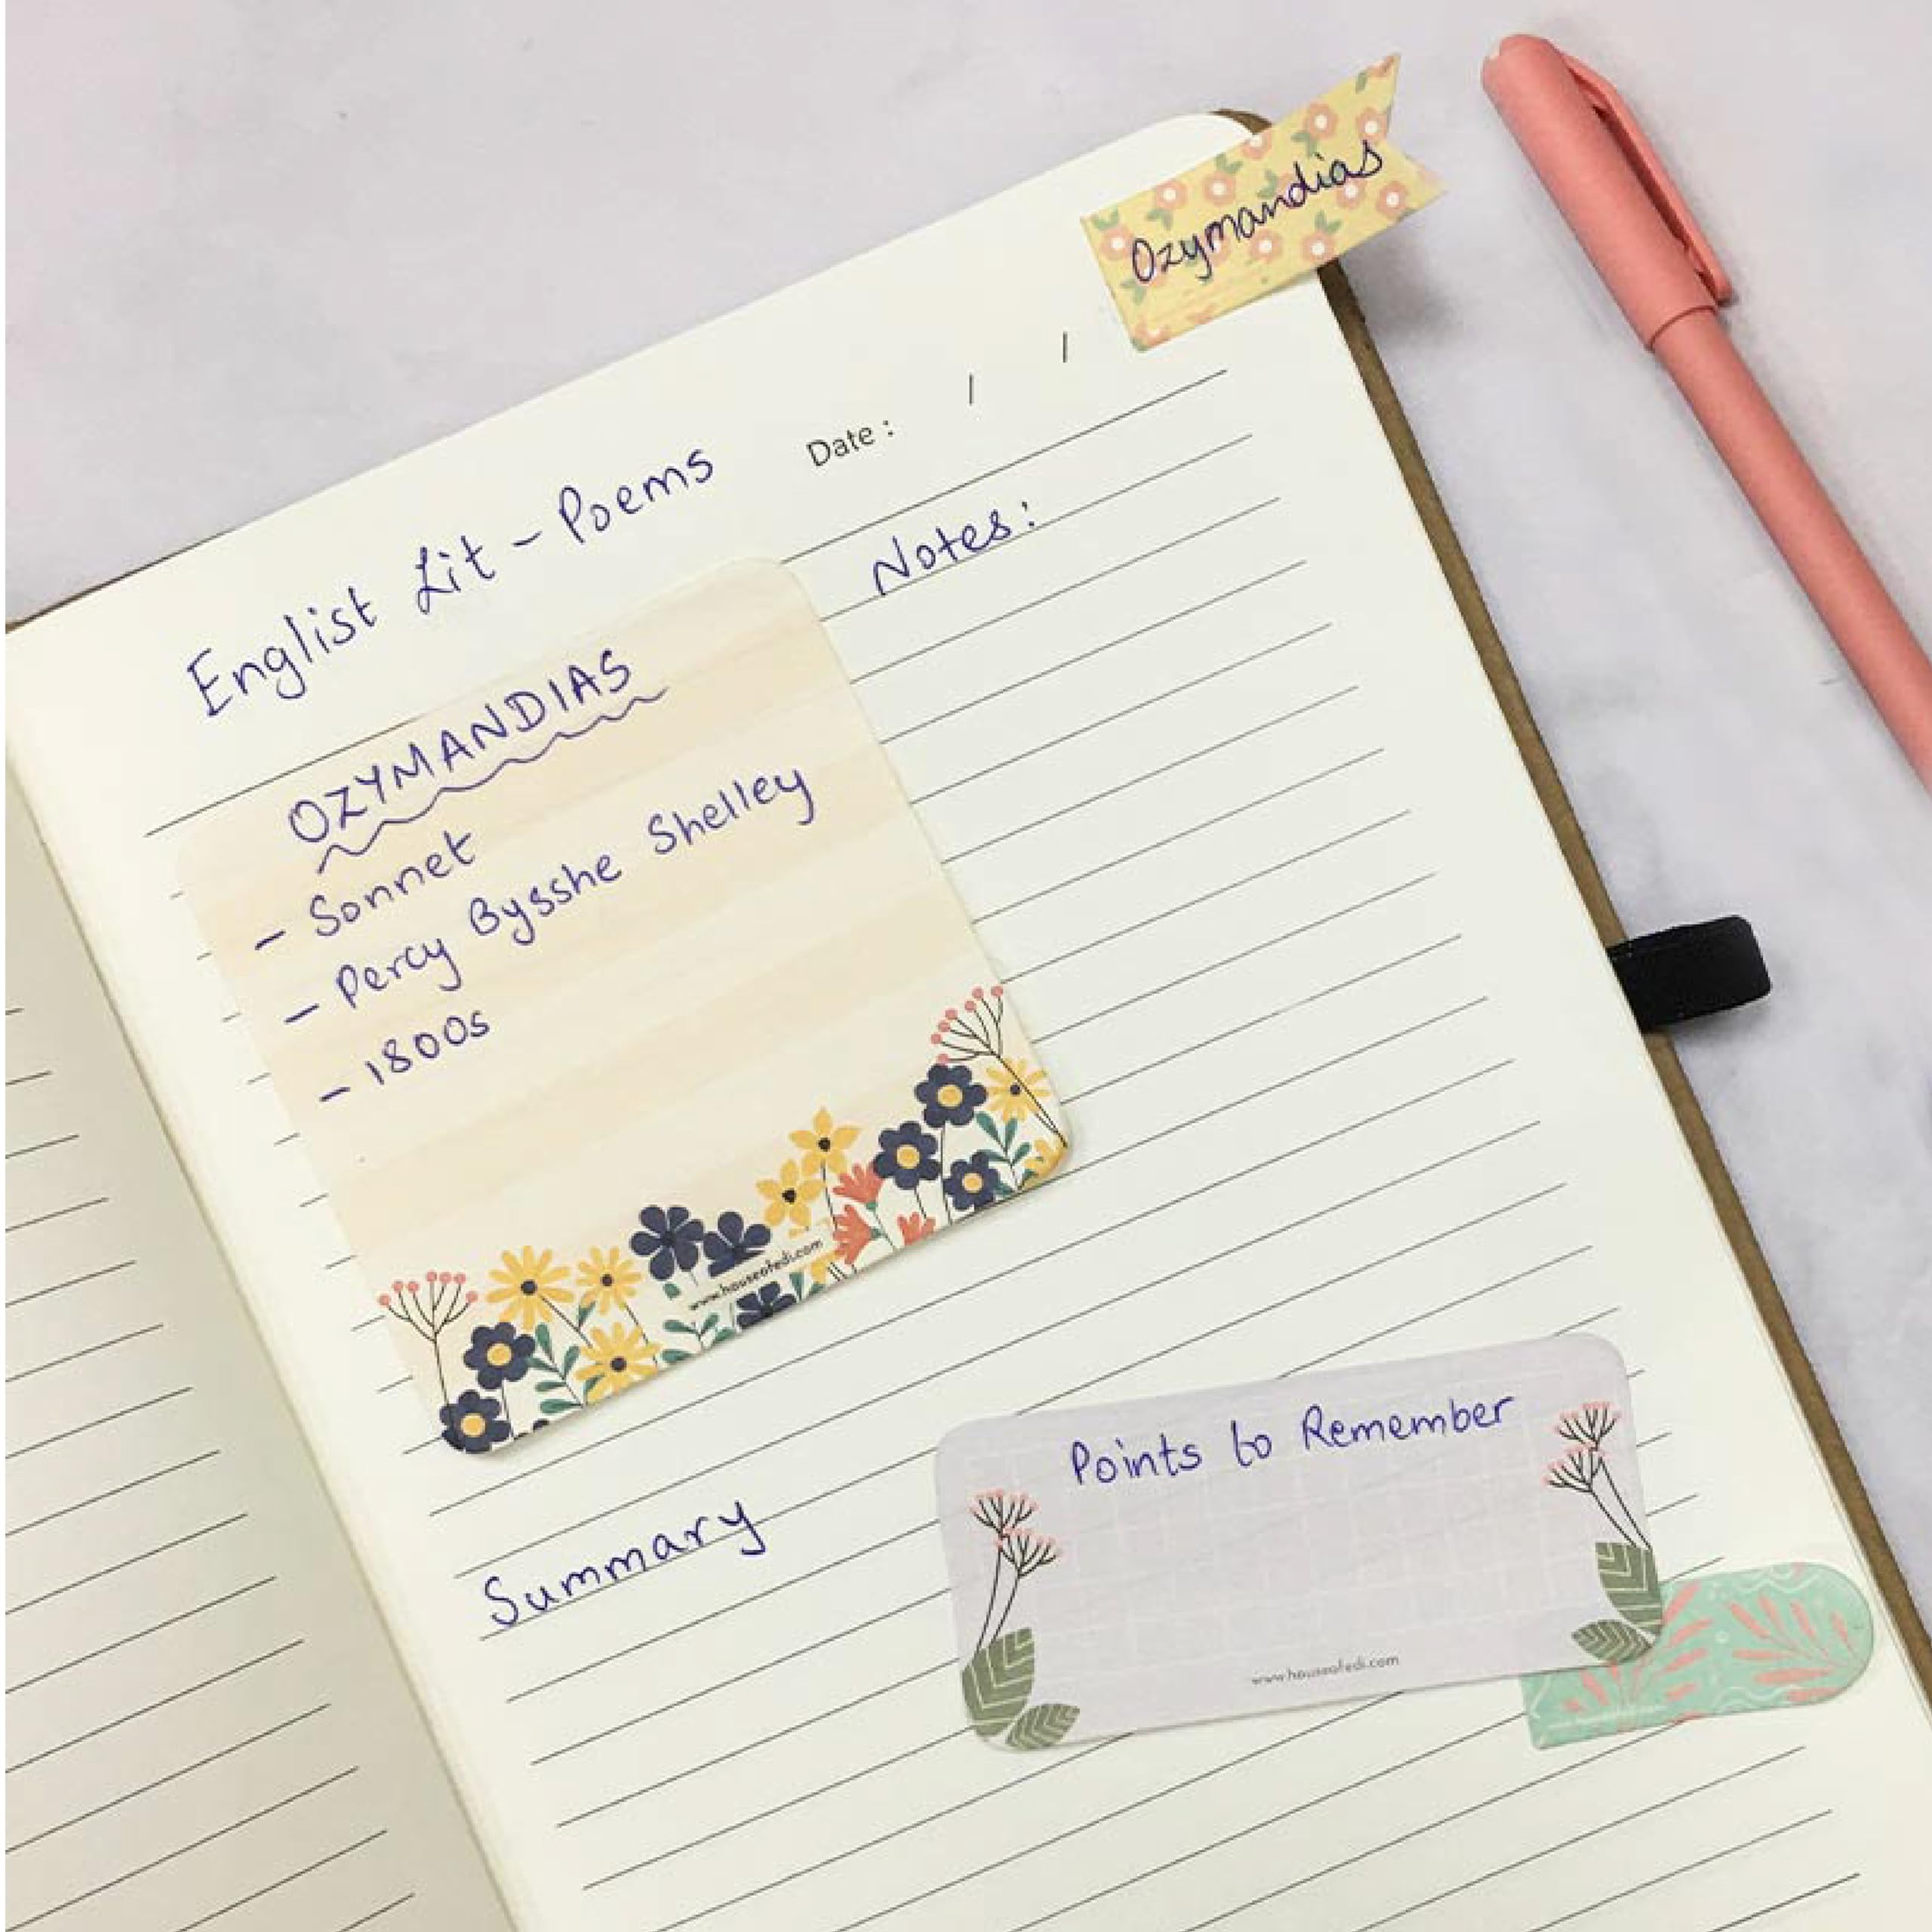 Ozymandias
Date : / /
Englist Lit - Poems
Notes:
OZYMANDIAS
- Sonnet
- Percy Bysshe Shelley
- 1800s
www.houseofedi.com
Summary
Points to Remember
www.houseofedi.com